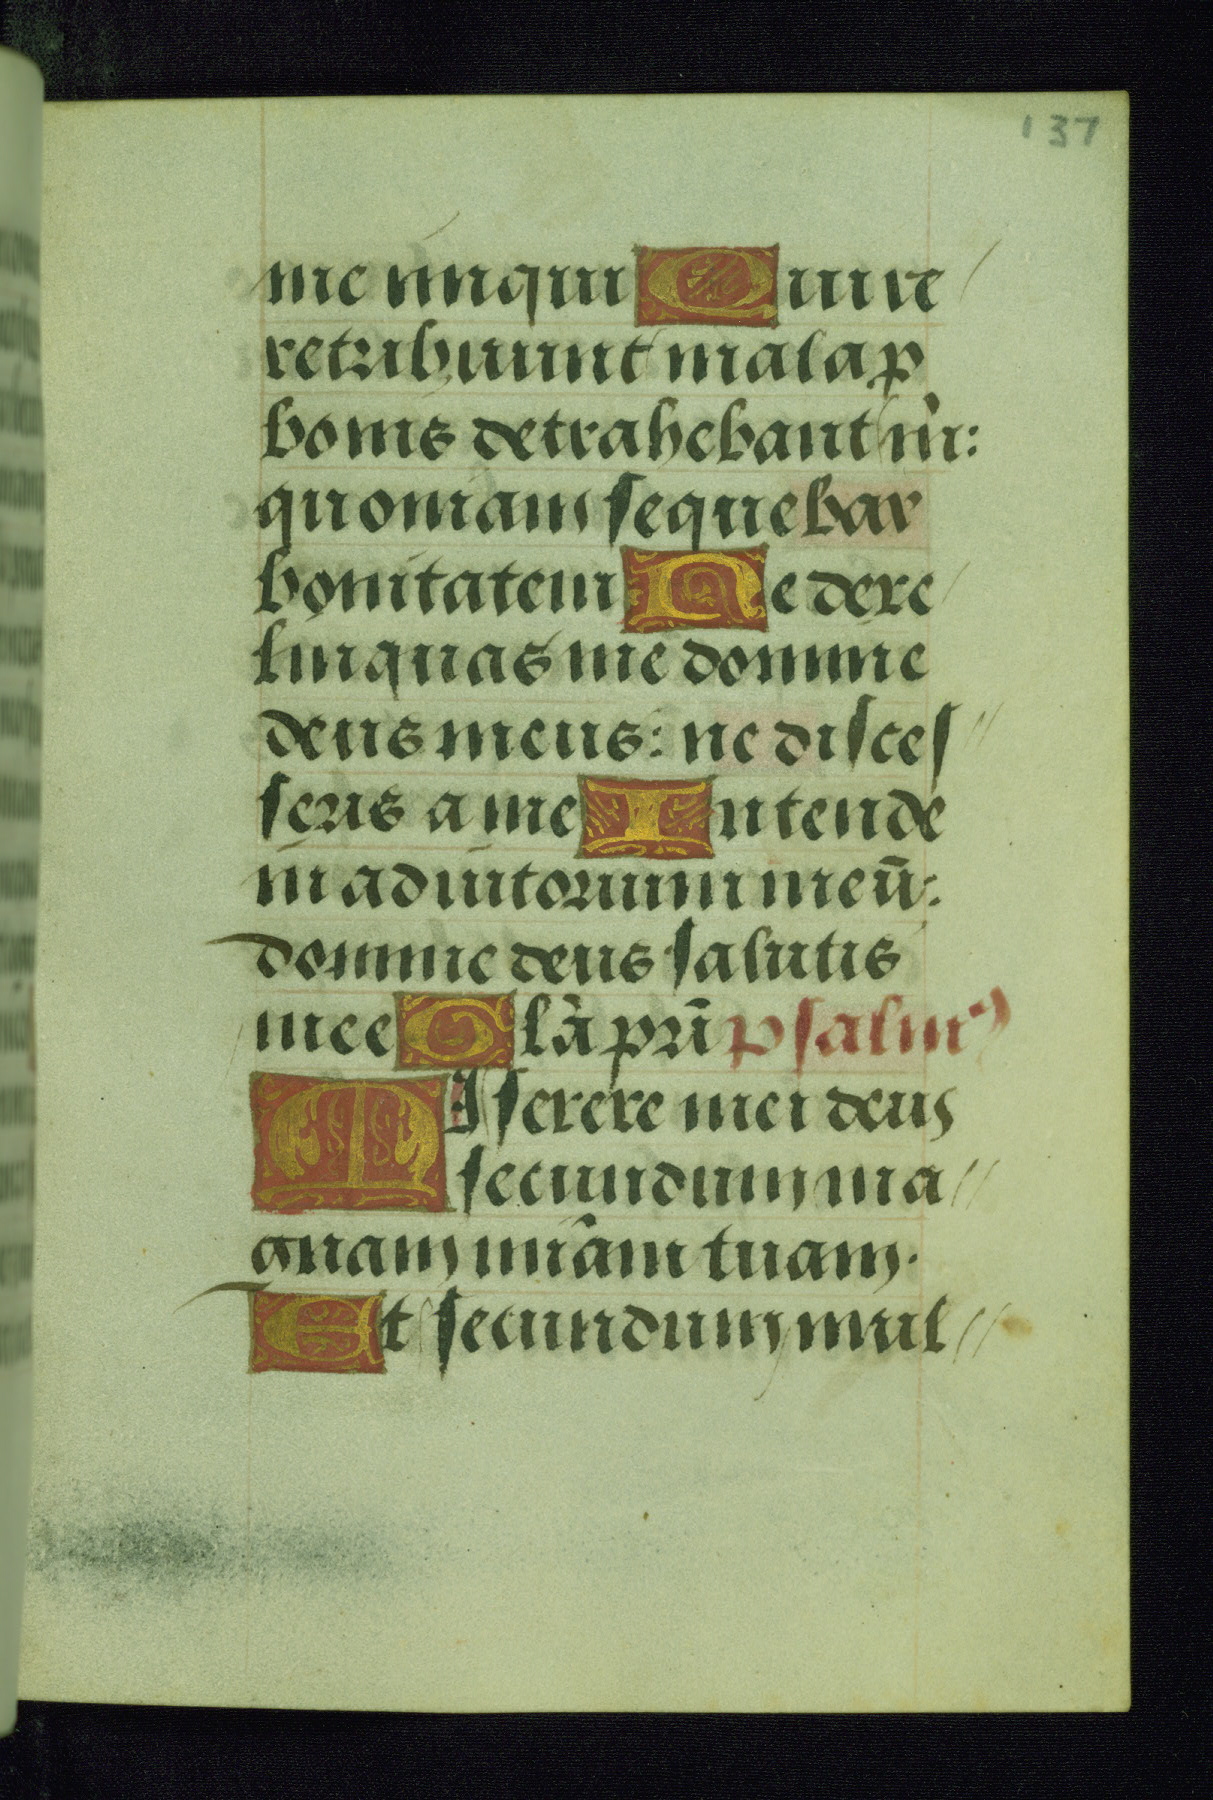 137
me iniqui Qui re
retribuunt mala p
bonis detrahebant m̄:
quoniam sequebar
bonitatem Ne dere
linquas me domine
deus meus: ne disces
seris a me Intende
in adiutorium meū:
domine deus salutis
mee Glā prī psalm⁹
MIserere mei deus
secundum ma
gnam miām tuam.
Et secundum mul